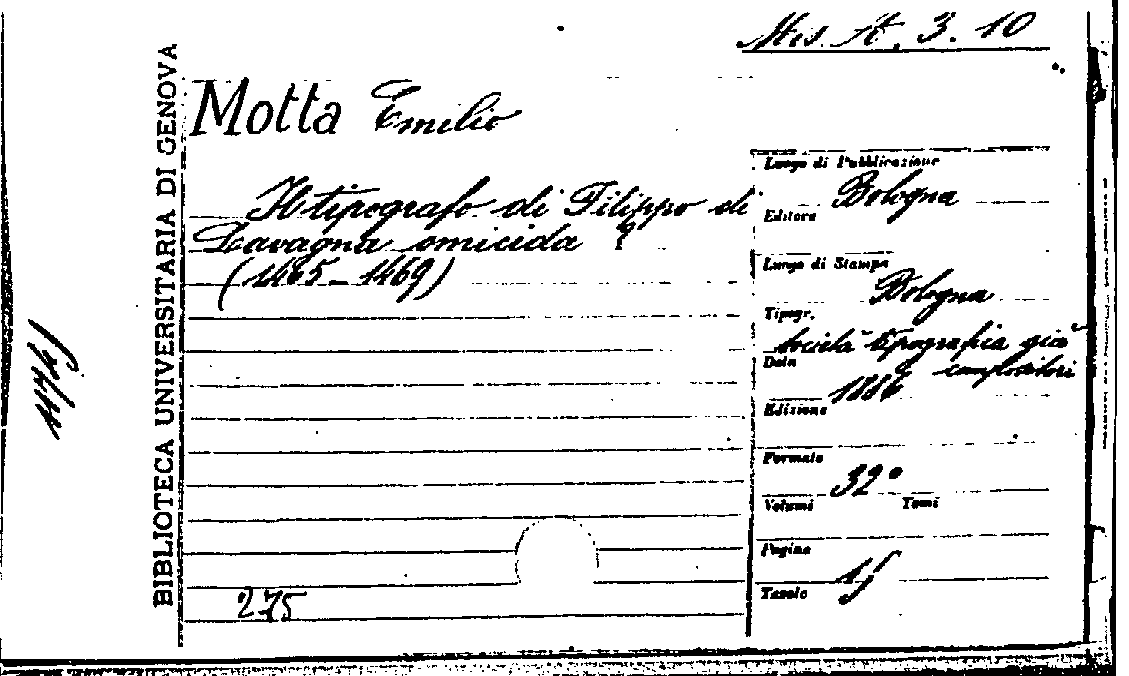 Mis. A. 3. 10
BIBLIOTECA UNIVERSITARIA DI GENOVA
Motta Emilio
Il tipografo di Filippo di
Lavagna omicida ?
(1465-1469)
275
Luogo di Pubblicazione
Bologna
Editore
Luogo di Stampa
Bologna
Tipogr.
Società tipografica già
compositori
Data
1886
Edizione
Formato
32°
Volumi Tomi
Pagine
15
Tavole